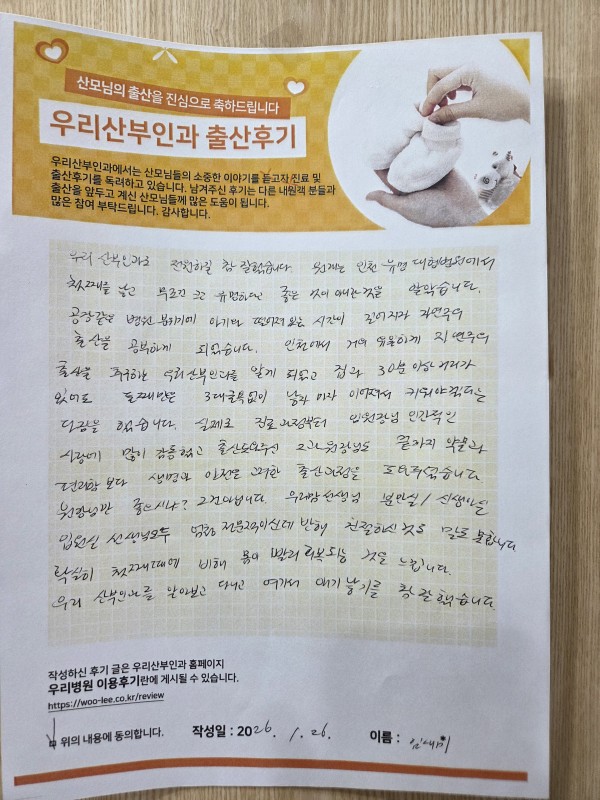 산모님의 출산을 진심으로 축하드립니다
우리산부인과 출산후기
우리산부인과에서는 산모님들의 소중한 이야기를 듣고자 진료 및
출산후기를 독려하고 있습니다. 남겨주신 후기는 다른 내원객 분들과
출산을 앞두고 계신 산모님들께 많은 도움이 됩니다.
많은 참여 부탁드립니다. 감사합니다.
우리 산부인과로 전원하길 참 잘했습니다. 원래는 인천 유명 대형병원에서
첫째를 낳고 무조건 크고 유명하다면 좋은 것이 아니란 것을 알았습니다.
공장같은 병원 분위기에 아기와 떨어져 있는 시간이 길어지자 자연주의
출산을 공부하게 되었습니다. 인천에서 거의 유일하게 자연주의
출산을 추구하는 우리산부인과를 알게 되었고 집과 30분 이상 거리가
있어도 둘째만은 3대굴욕없이 낳자마자 이어져서 키워야겠다는
다짐을 했습니다. 실제로 진료과정부터 임원장님 인간적인
사랑에 많이 감동했고 출산도와주신 고원장님도 끝까지 약물과
편리함 보다 생명과 안전을 고려한 출산과정을 도와주셨습니다
원장님만 좋으시냐? 그건아닙니다. 우리맘선생님 분만실/신생아실
입원실 선생님모두 넘 전문적이신데 반해 친절하신 것은 말도 못합니다
확실히 첫째때에 비해 몸이 빨리 회복되는 것을 느낍니다.
우리 산부인과를 알아보고 다니고 여기서 애기 낳기를 참 잘했습니다.
작성하신 후기 글은 우리산부인과 홈페이지
우리병원 이용후기란에 게시될 수 있습니다.
https://woo-lee.co.kr/review
위의 내용에 동의합니다. 작성일 : 2026. 1. 26. 이름 :